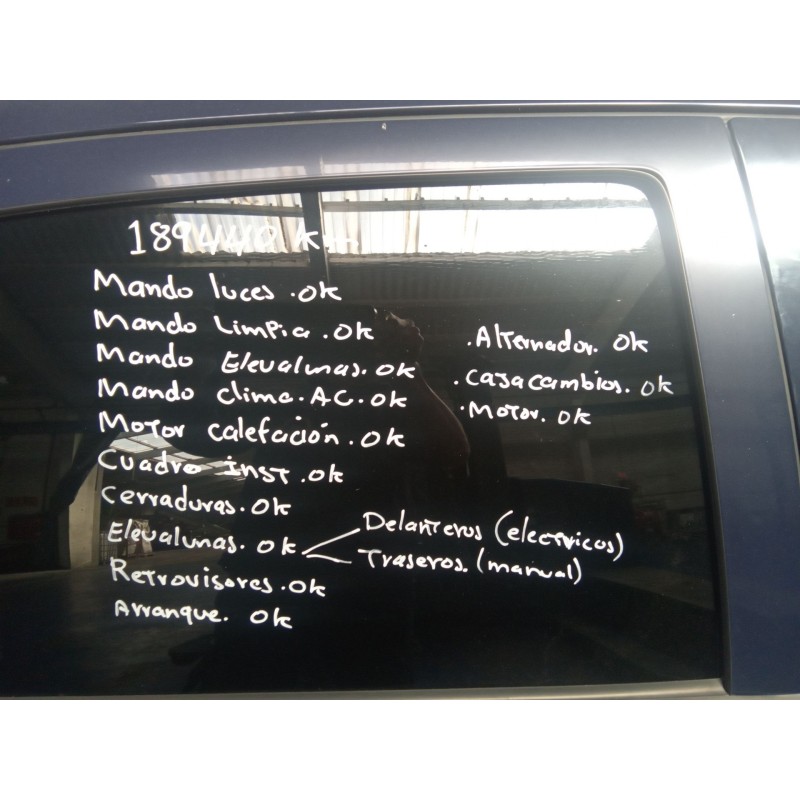 189440 Km
Mando luces .OK
Mando Limpia .OK
Mando Elevalunas. OK
Mando clima. AC. OK
Motor calefación. OK
Cuadro inst .OK
Cerraduras. OK
Elevalunas. OK
Delanteros (electricos)
Traseros. (manual)
Retrovisores. OK
Arranque. OK
.Alternador. OK
.Casacambios. OK
.Motor. OK